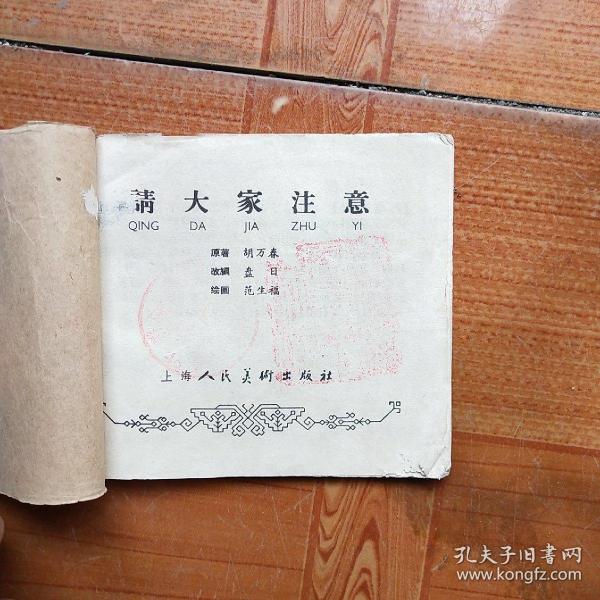 請大家注意
QING DA JIA ZHU YI
原著 胡万春
改編 盘日
绘圖 范生福
上海人民美術出版社
孔夫子旧书网
www.kongfz.com